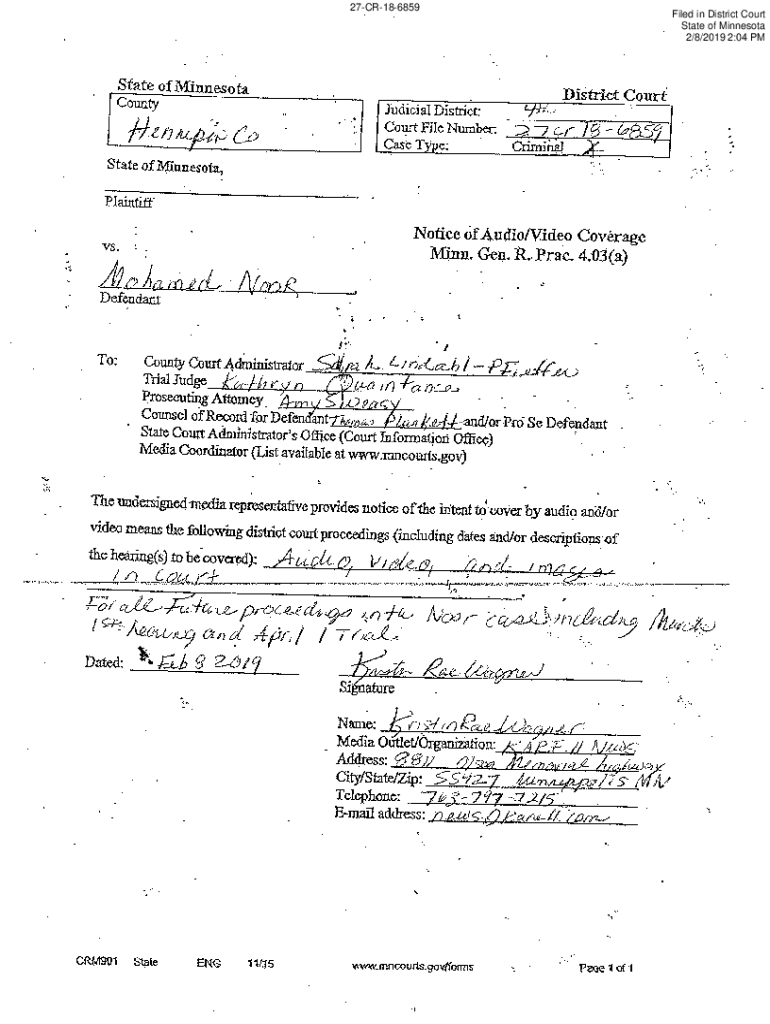 27-CR-18-6859
Filed in District Court
State of Minnesota
2/8/2019 2:04 PM
State of Minnesota
District Court
County
Hennepin Co
Judicial District: 4th
Court File Number: 27 Cr 18-6859
Case Type: Criminal X
State of Minnesota,
Plaintiff
vs.
Notice of Audio/Video Coverage
Minn. Gen. R. Prac. 4.03(a)
Mohamed Noor
Defendant
To: County Court Administrator Sarah Lindahl-Pfieffer
Trial Judge Kathryn Quaintance
Prosecuting Attorney Amy Sweasy
Counsel of Record for Defendant Thomas Plunkett and/or Pro Se Defendant
State Court Administrator's Office (Court Information Office)
Media Coordinator (List available at www.mncourts.gov)
The undersigned media representative provides notice of the intent to cover by audio and/or
video means the following district court proceedings (including dates and/or descriptions of
the hearing(s) to be covered): Audio, video, and images
in court
For all Future proceedings in the Noor case including March
1st hearing and April 1 Trial.
Dated: Feb 8 2019
Kristin Rae Wagner
Signature
Name: Kristin Rae Wagner
Media Outlet/Organization: KARE 11 News
Address: 8811 Olson Memorial highway
City/State/Zip: 55427 Minneapolis MN
Telephone: 763-797-7215
E-mail address: news@kare11.com
CRM901 State ENG 11/15 www.mncourts.gov/forms Page 1 of 1